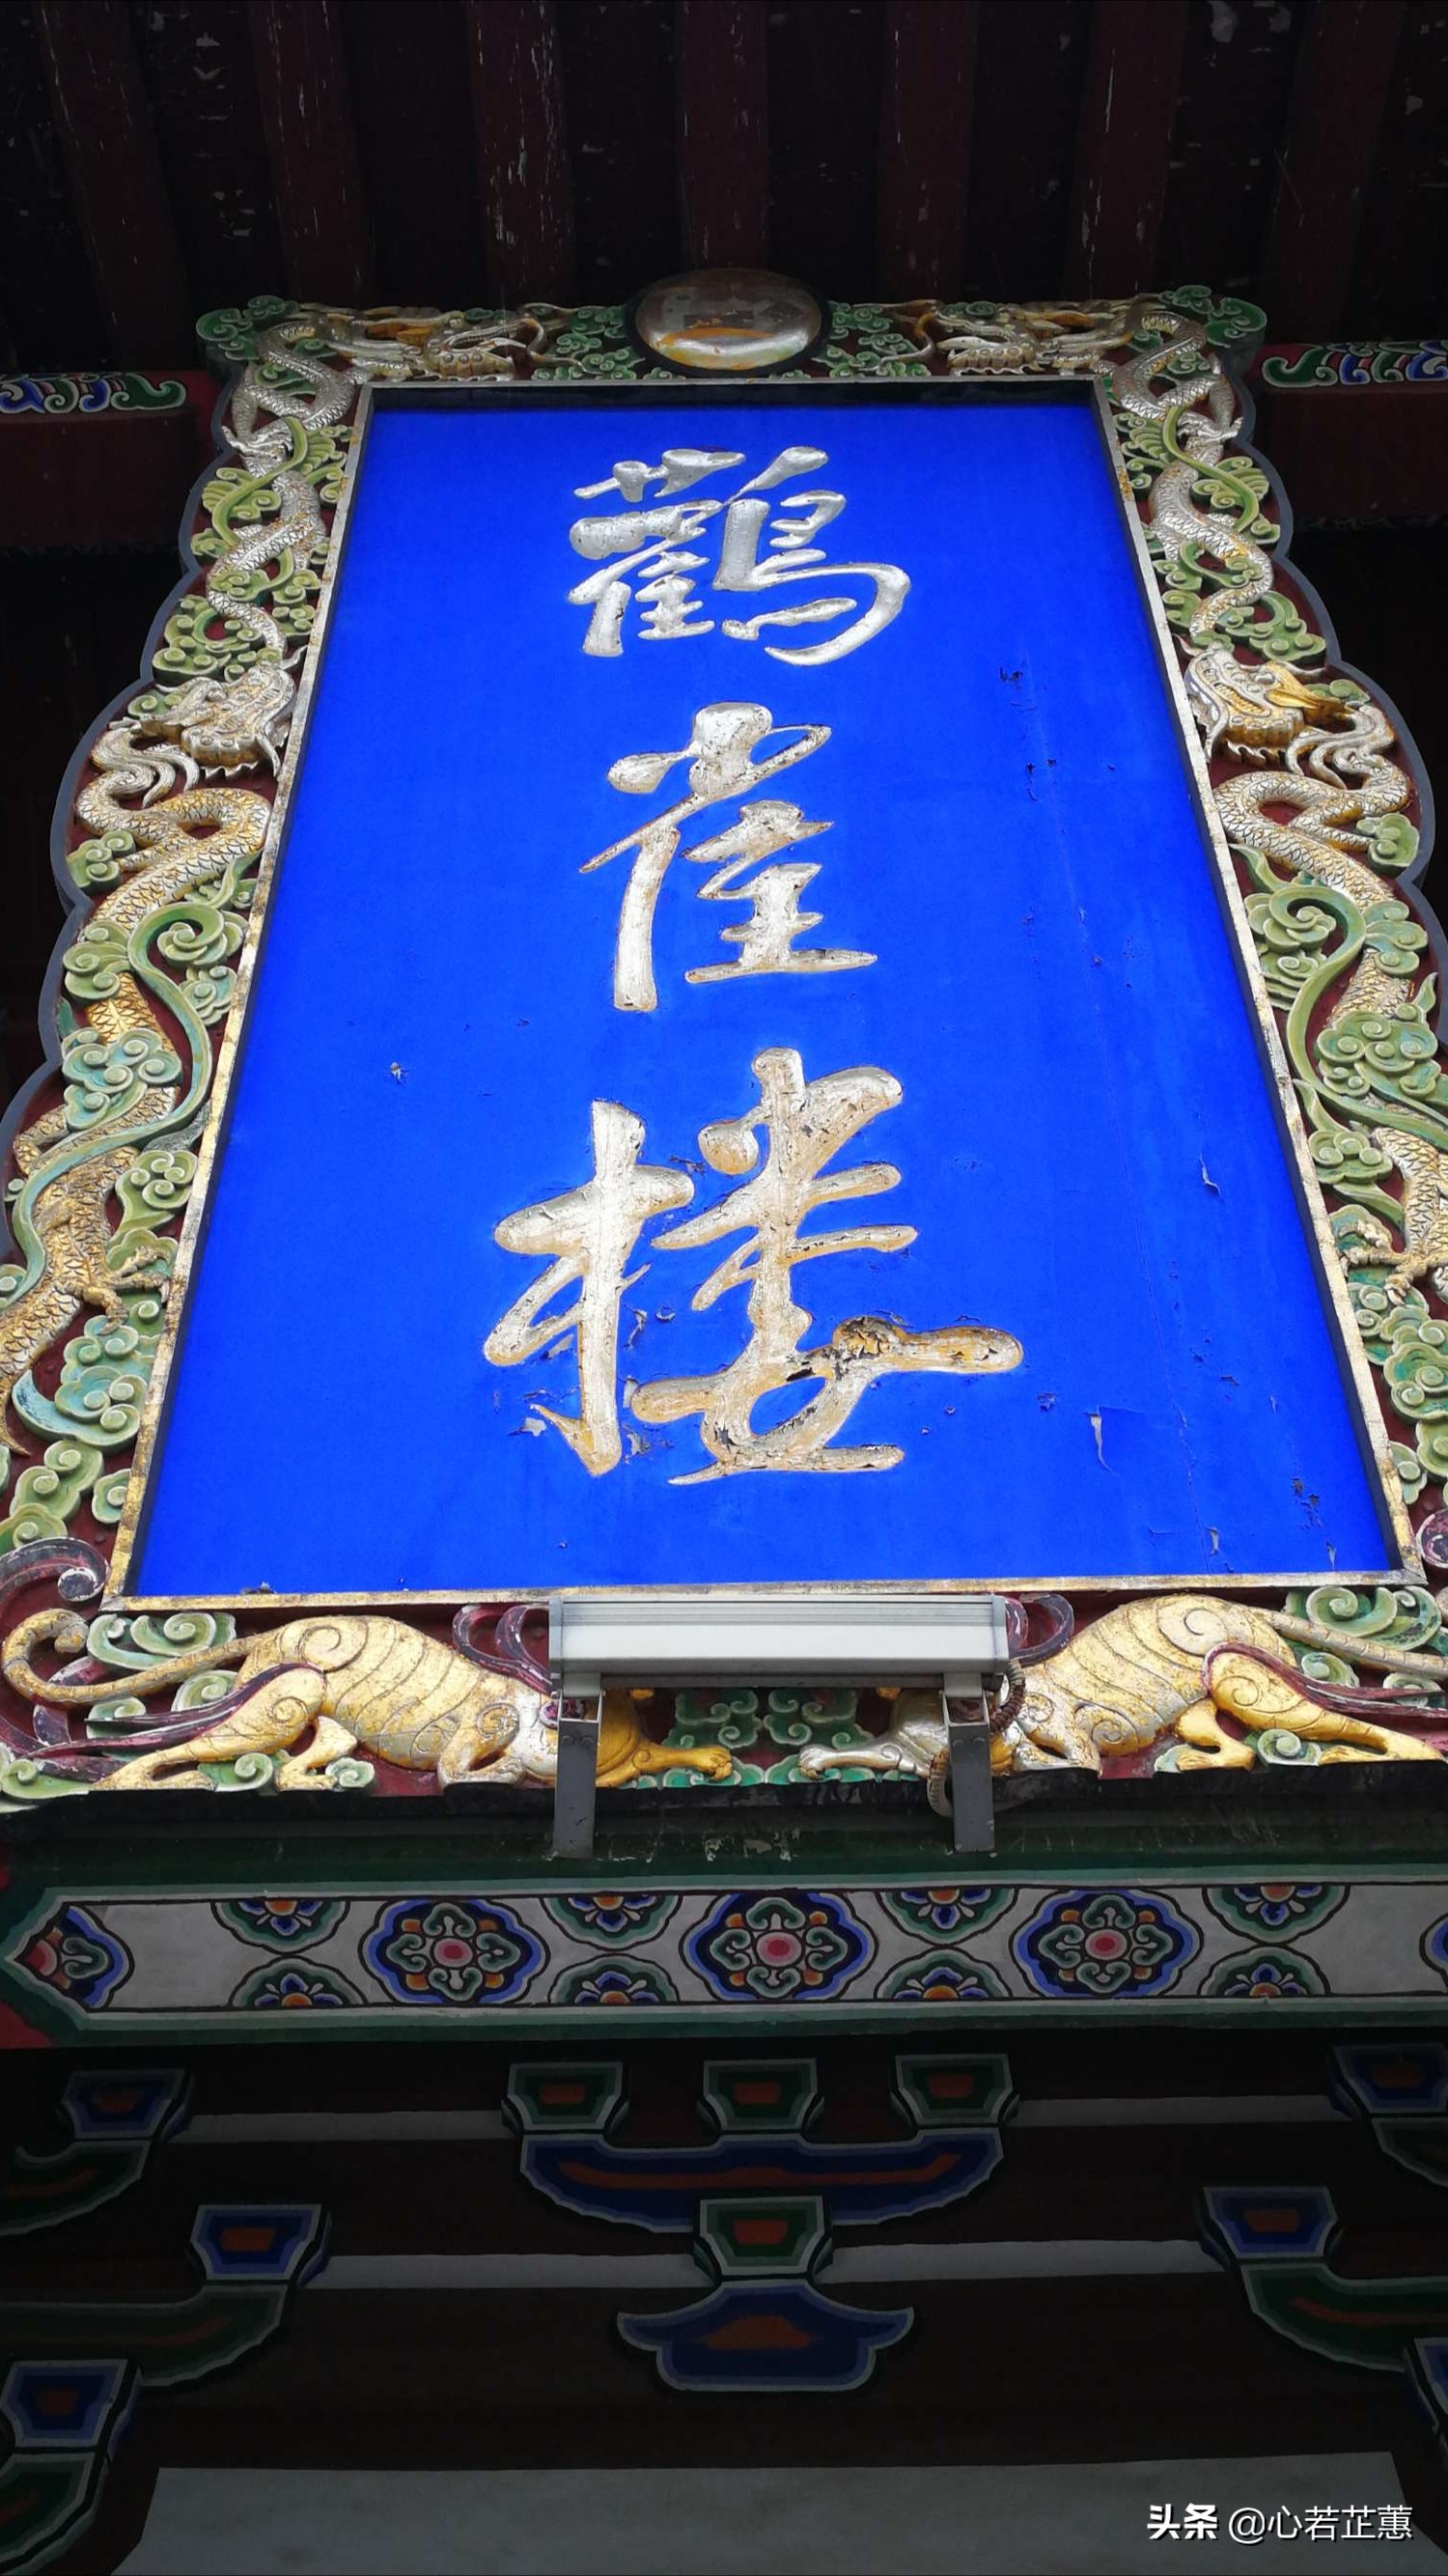 鸛雀楼
头条 @心若芷蕙